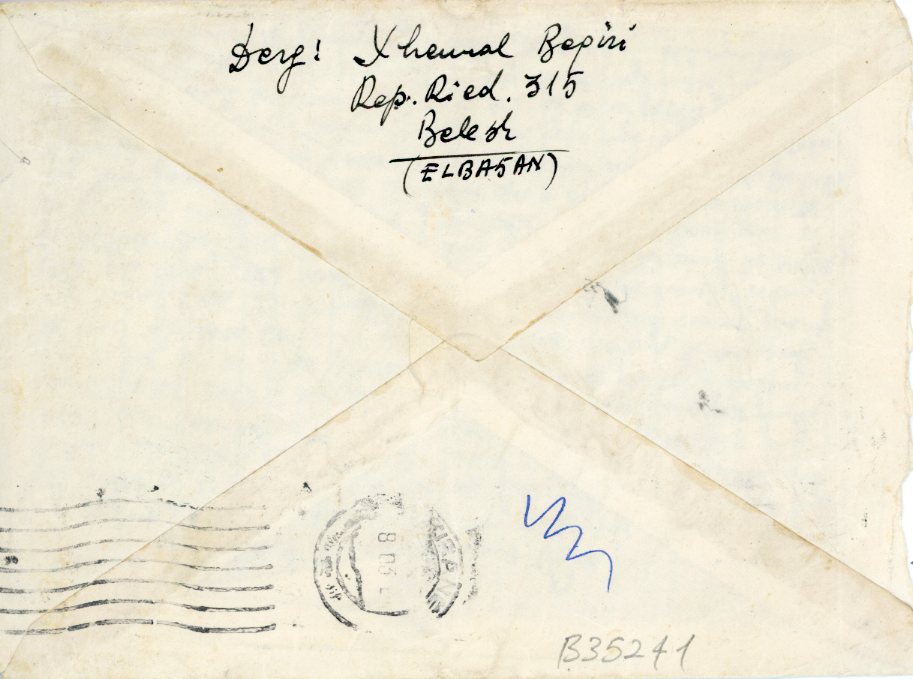 Derg! Xhemal Beqiri
Rep. Ried. 315
Belesh
(ELBASAN)
B35241